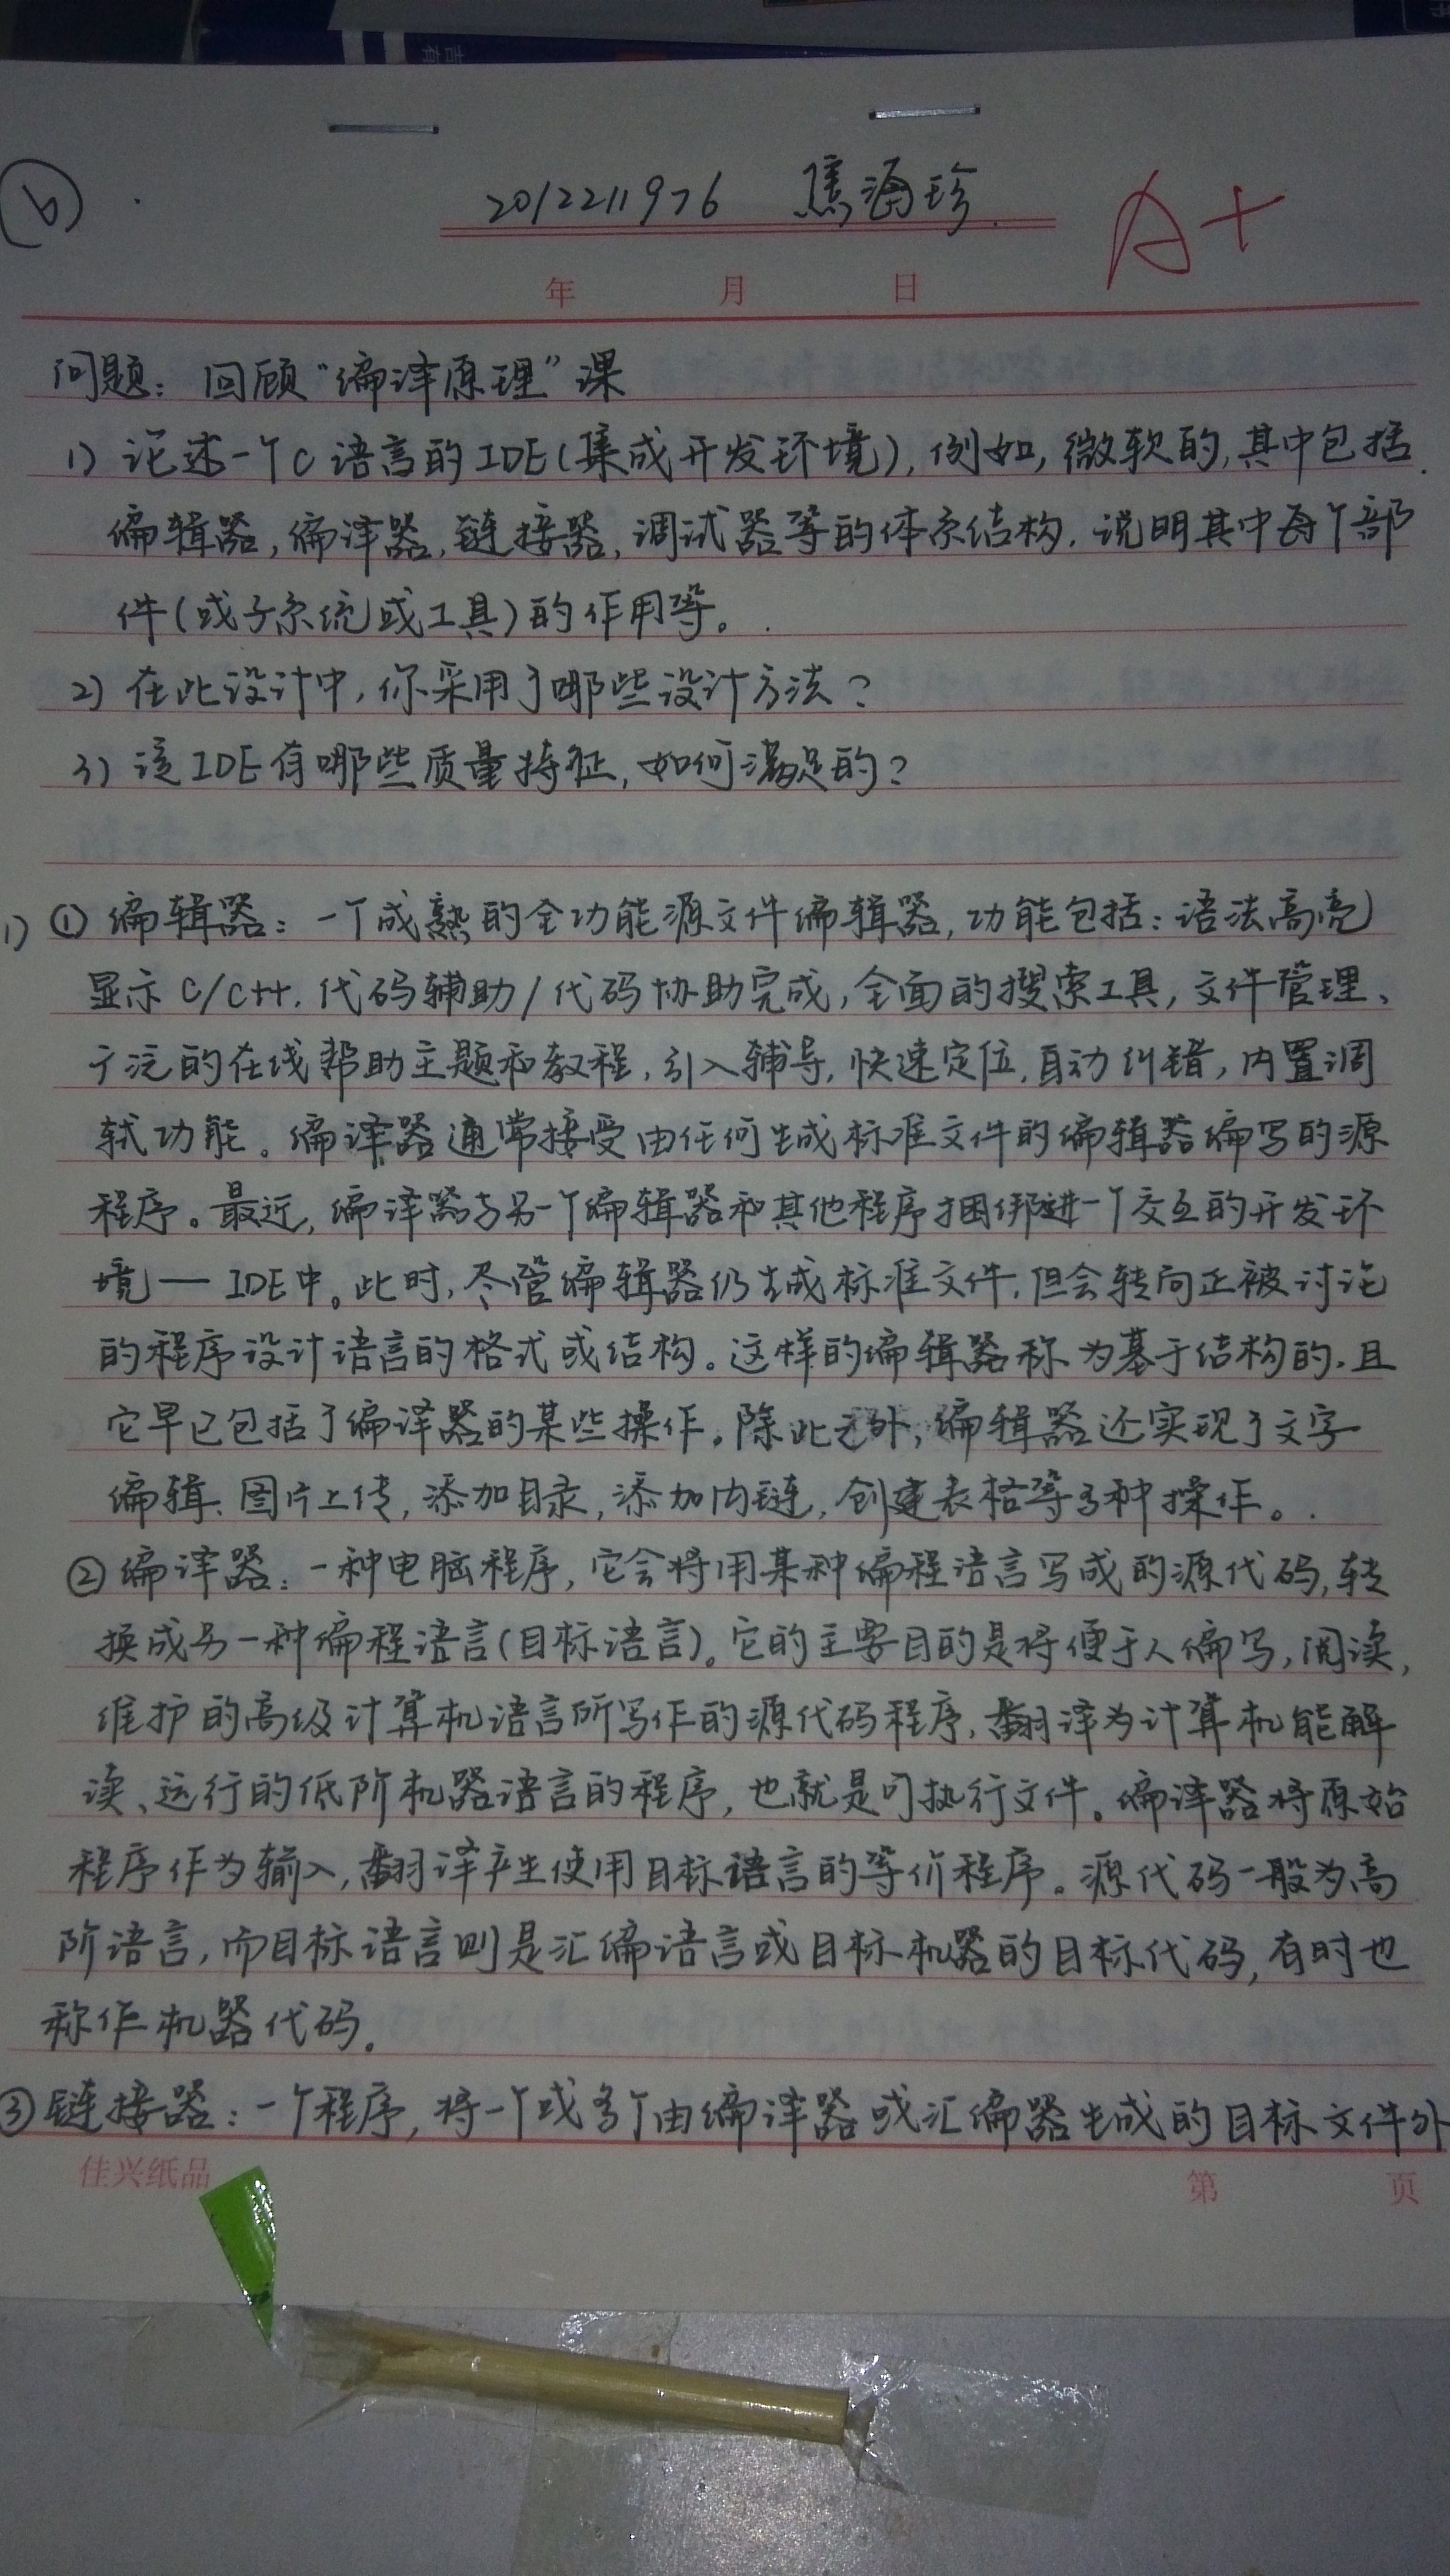 ⑥
2012211976 焦海珍
A+
年 月 日
问题：回顾“编译原理”课
1) 论述一个C语言的IDE(集成开发环境),例如,微软的,其中包括
编辑器,编译器,链接器,调试器等的体系结构.说明其中每个部
件(或子系统或工具)的作用等。
2) 在此设计中,你采用了哪些设计方法?
3) 该IDE有哪些质量特征,如何满足的?
1) ① 编辑器：一个成熟的全功能源文件编辑器,功能包括：语法高亮
显示C/C++.代码辅助/代码协助完成,全面的搜索工具,文件管理、
广泛的在线帮助主题和教程,引入辅导,快速定位,自动纠错,内置调
试功能。编译器通常接受由任何生成标准文件的编辑器编写的源
程序。最近,编译器与另一个编辑器和其他程序捆绑进一个交互的开发环
境—IDE中。此时,尽管编辑器仍生成标准文件,但会转向正被讨论
的程序设计语言的格式或结构。这样的编辑器称为基于结构的,且
它早已包括了编译器的某些操作。除此之外,编辑器还实现了文字
编辑、图片上传,添加目录,添加内链,创建表格等多种操作。
② 编译器：一种电脑程序,它会将用某种编程语言写成的源代码,转
换成另一种编程语言(目标语言)。它的主要目的是将便于人编写,阅读,
维护的高级计算机语言所写作的源代码程序,翻译为计算机能解
读、运行的低阶机器语言的程序,也就是可执行文件。编译器将原始
程序作为输入,翻译产生使用目标语言的等价程序。源代码一般为高
阶语言,而目标语言则是汇编语言或目标机器的目标代码,有时也
称作机器代码。
③ 链接器：一个程序,将一个或多个由编译器或汇编器生成的目标文件外
佳兴纸品 第 页